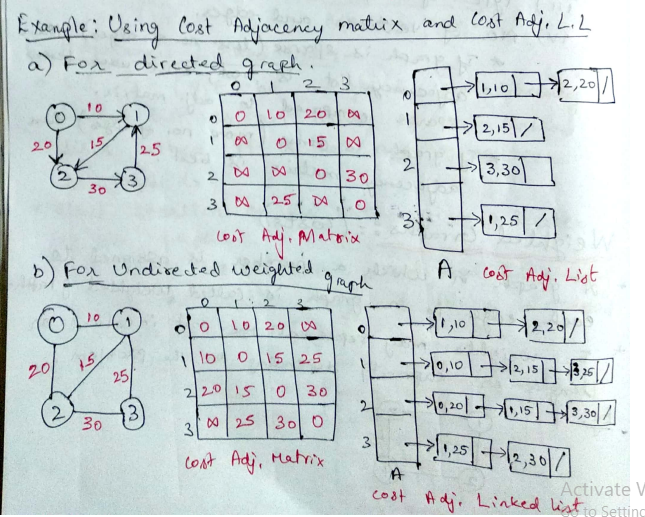 Example: Using Cost Adjacency matrix and Cost Adj. L.L
a) For directed graph.
0 10 1
20 15 25
2 30 3
0 1 2 3
0 0 10 20 ∞
1 ∞ 0 15 ∞
2 ∞ ∞ 0 30
3 ∞ 25 ∞ 0
Cost Adj. Matrix
0 1,10 2,20 /
1 2,15 /
2 3,30
3 1,25 /
A Cost Adj. List
b) For Undirected weighted graph
0 10 1
20 15 25
2 30 3
0 1 2 3
0 0 10 20 ∞
1 10 0 15 25
2 20 15 0 30
3 ∞ 25 30 0
Cost Adj. Matrix
0 1,10 2,20 /
1 0,10 2,15 3,25 /
2 0,20 1,15 3,30 /
3 1,25 2,30 /
A
Cost Adj. Linked list
Activate
to Setting